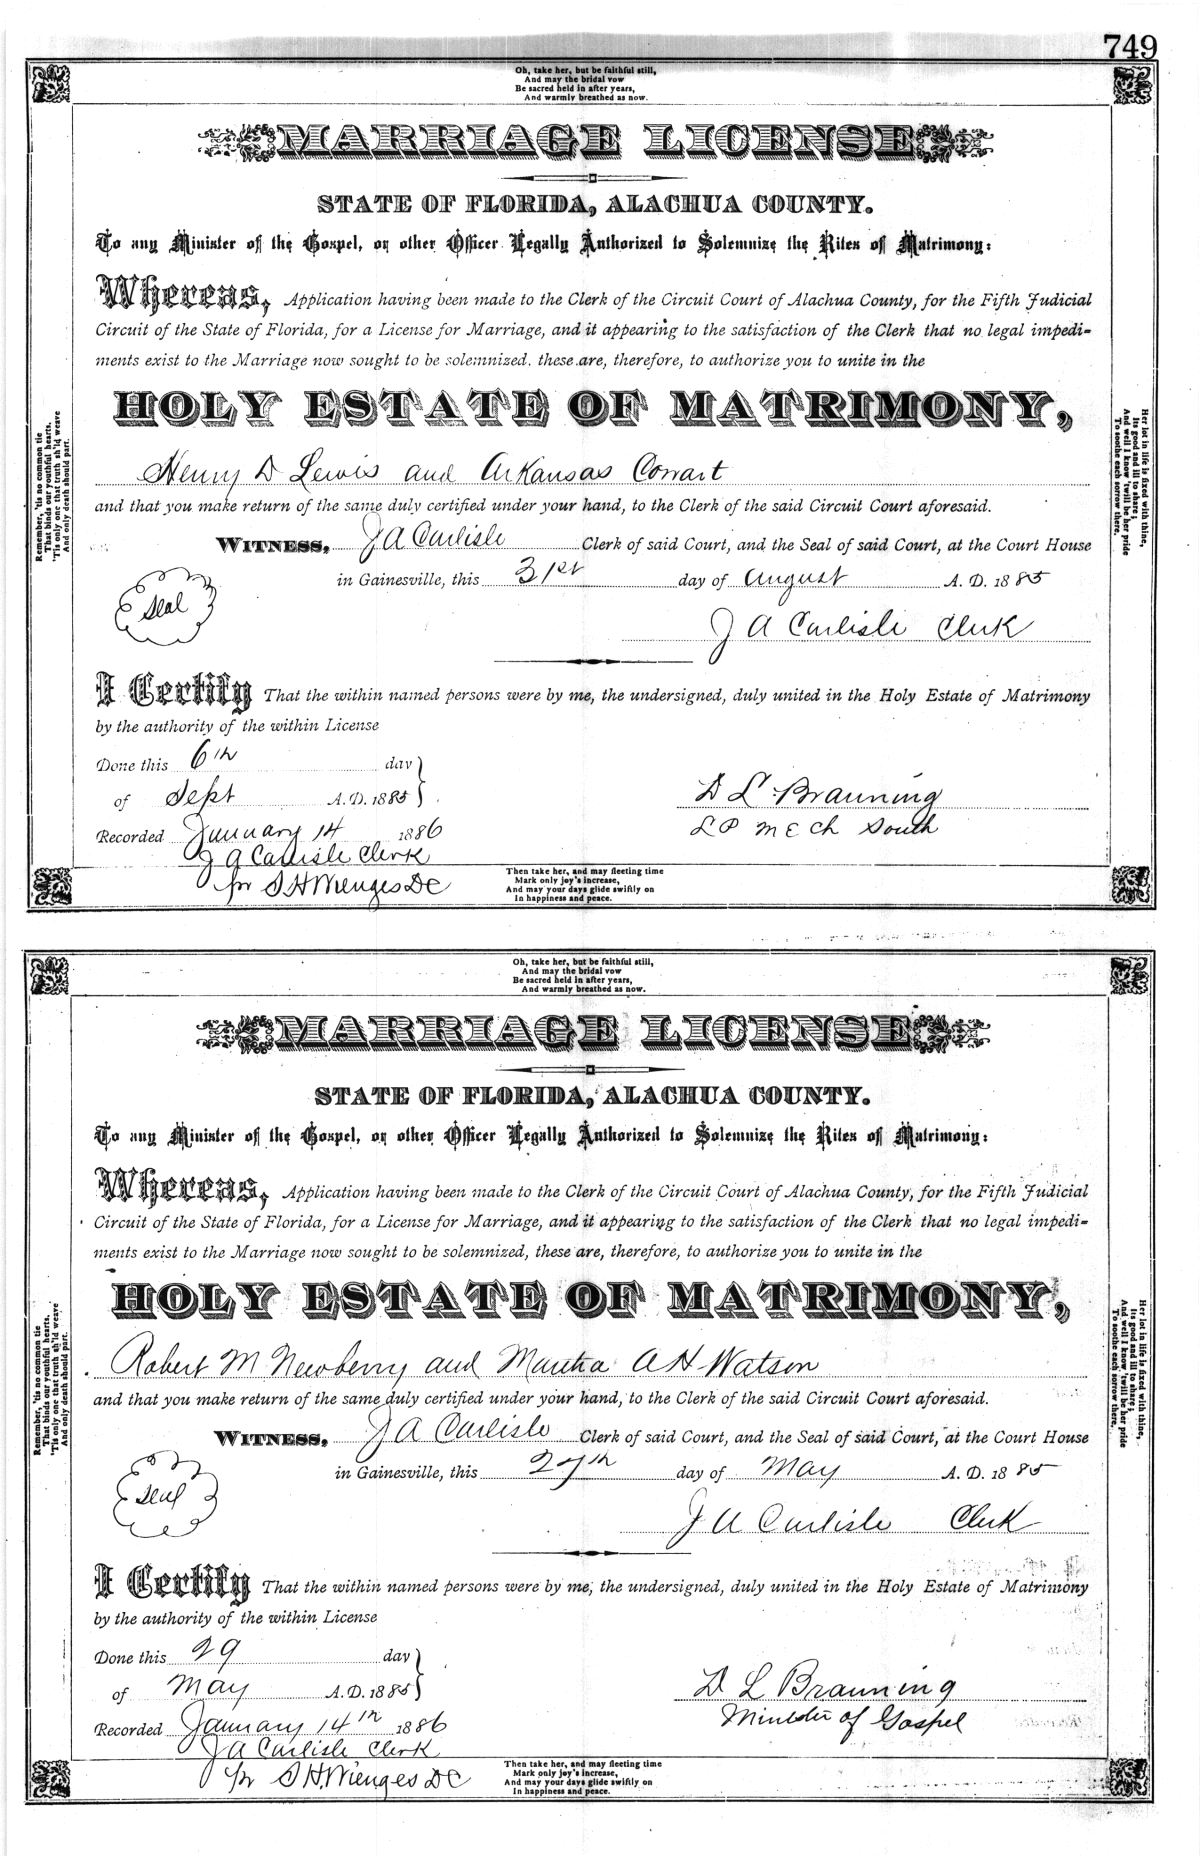 749
Oh, take her, but be faithful still,
And may the bridal vow
Be sacred held in after years,
And warmly breathed as now.
MARRIAGE LICENSE
STATE OF FLORIDA, ALACHUA COUNTY.
To any Minister of the Gospel, or other Officer Legally Authorized to Solemnize the Rites of Matrimony:
Whereas, Application having been made to the Clerk of the Circuit Court of Alachua County, for the Fifth Judicial
Circuit of the State of Florida, for a License for Marriage, and it appearing to the satisfaction of the Clerk that no legal impedi-
ments exist to the Marriage now sought to be solemnized, these are, therefore, to authorize you to unite in the
HOLY ESTATE OF MATRIMONY,
Henry D Lewis and Arkansas Cowart
and that you make return of the same duly certified under your hand, to the Clerk of the said Circuit Court aforesaid.
WITNESS, J A Carlisle Clerk of said Court, and the Seal of said Court, at the Court House
in Gainesville, this 31st day of August A. D. 1885
Seal
J A Carlisle Clerk
I Certify That the within named persons were by me, the undersigned, duly united in the Holy Estate of Matrimony
by the authority of the within License
Done this 6th day
of Sept A. D. 1885
D L Brauning
L P M E Ch South
Recorded January 14 1886
J A Carlisle Clerk
pr S H Wienges DC
Then take her, and may fleeting time
Mark only joy's increase,
And may your days glide swiftly on
In happiness and peace.
Remember, 'tis no common tie
That binds our youthful hearts,
'Tis only one that truth sh'ld weave
And only death should part.
Her lot in life is fixed with thine,
Its good and ill to share;
And well I know 'twill be her pride
To soothe each sorrow there.
Oh, take her, but be faithful still,
And may the bridal vow
Be sacred held in after years,
And warmly breathed as now.
MARRIAGE LICENSE
STATE OF FLORIDA, ALACHUA COUNTY.
To any Minister of the Gospel, or other Officer Legally Authorized to Solemnize the Rites of Matrimony:
Whereas, Application having been made to the Clerk of the Circuit Court of Alachua County, for the Fifth Judicial
Circuit of the State of Florida, for a License for Marriage, and it appearing to the satisfaction of the Clerk that no legal impedi-
ments exist to the Marriage now sought to be solemnized, these are, therefore, to authorize you to unite in the
HOLY ESTATE OF MATRIMONY,
Robert M Newberry and Martha A H Watson
and that you make return of the same duly certified under your hand, to the Clerk of the said Circuit Court aforesaid.
WITNESS, J A Carlisle Clerk of said Court, and the Seal of said Court, at the Court House
in Gainesville, this 27th day of May A. D. 1885
Seal
J A Carlisle Clerk
I Certify That the within named persons were by me, the undersigned, duly united in the Holy Estate of Matrimony
by the authority of the within License
Done this 29 day
of May A. D. 1885
D L Brauning
Minister of Gospel
Recorded January 14th 1886
J A Carlisle Clerk
pr S H Wienges DC
Then take her, and may fleeting time
Mark only joy's increase,
And may your days glide swiftly on
In happiness and peace.
Remember, 'tis no common tie
That binds our youthful hearts,
'Tis only one that truth sh'ld weave
And only death should part.
Her lot in life is fixed with thine,
Its good and ill to share;
And well I know 'twill be her pride
To soothe each sorrow there.